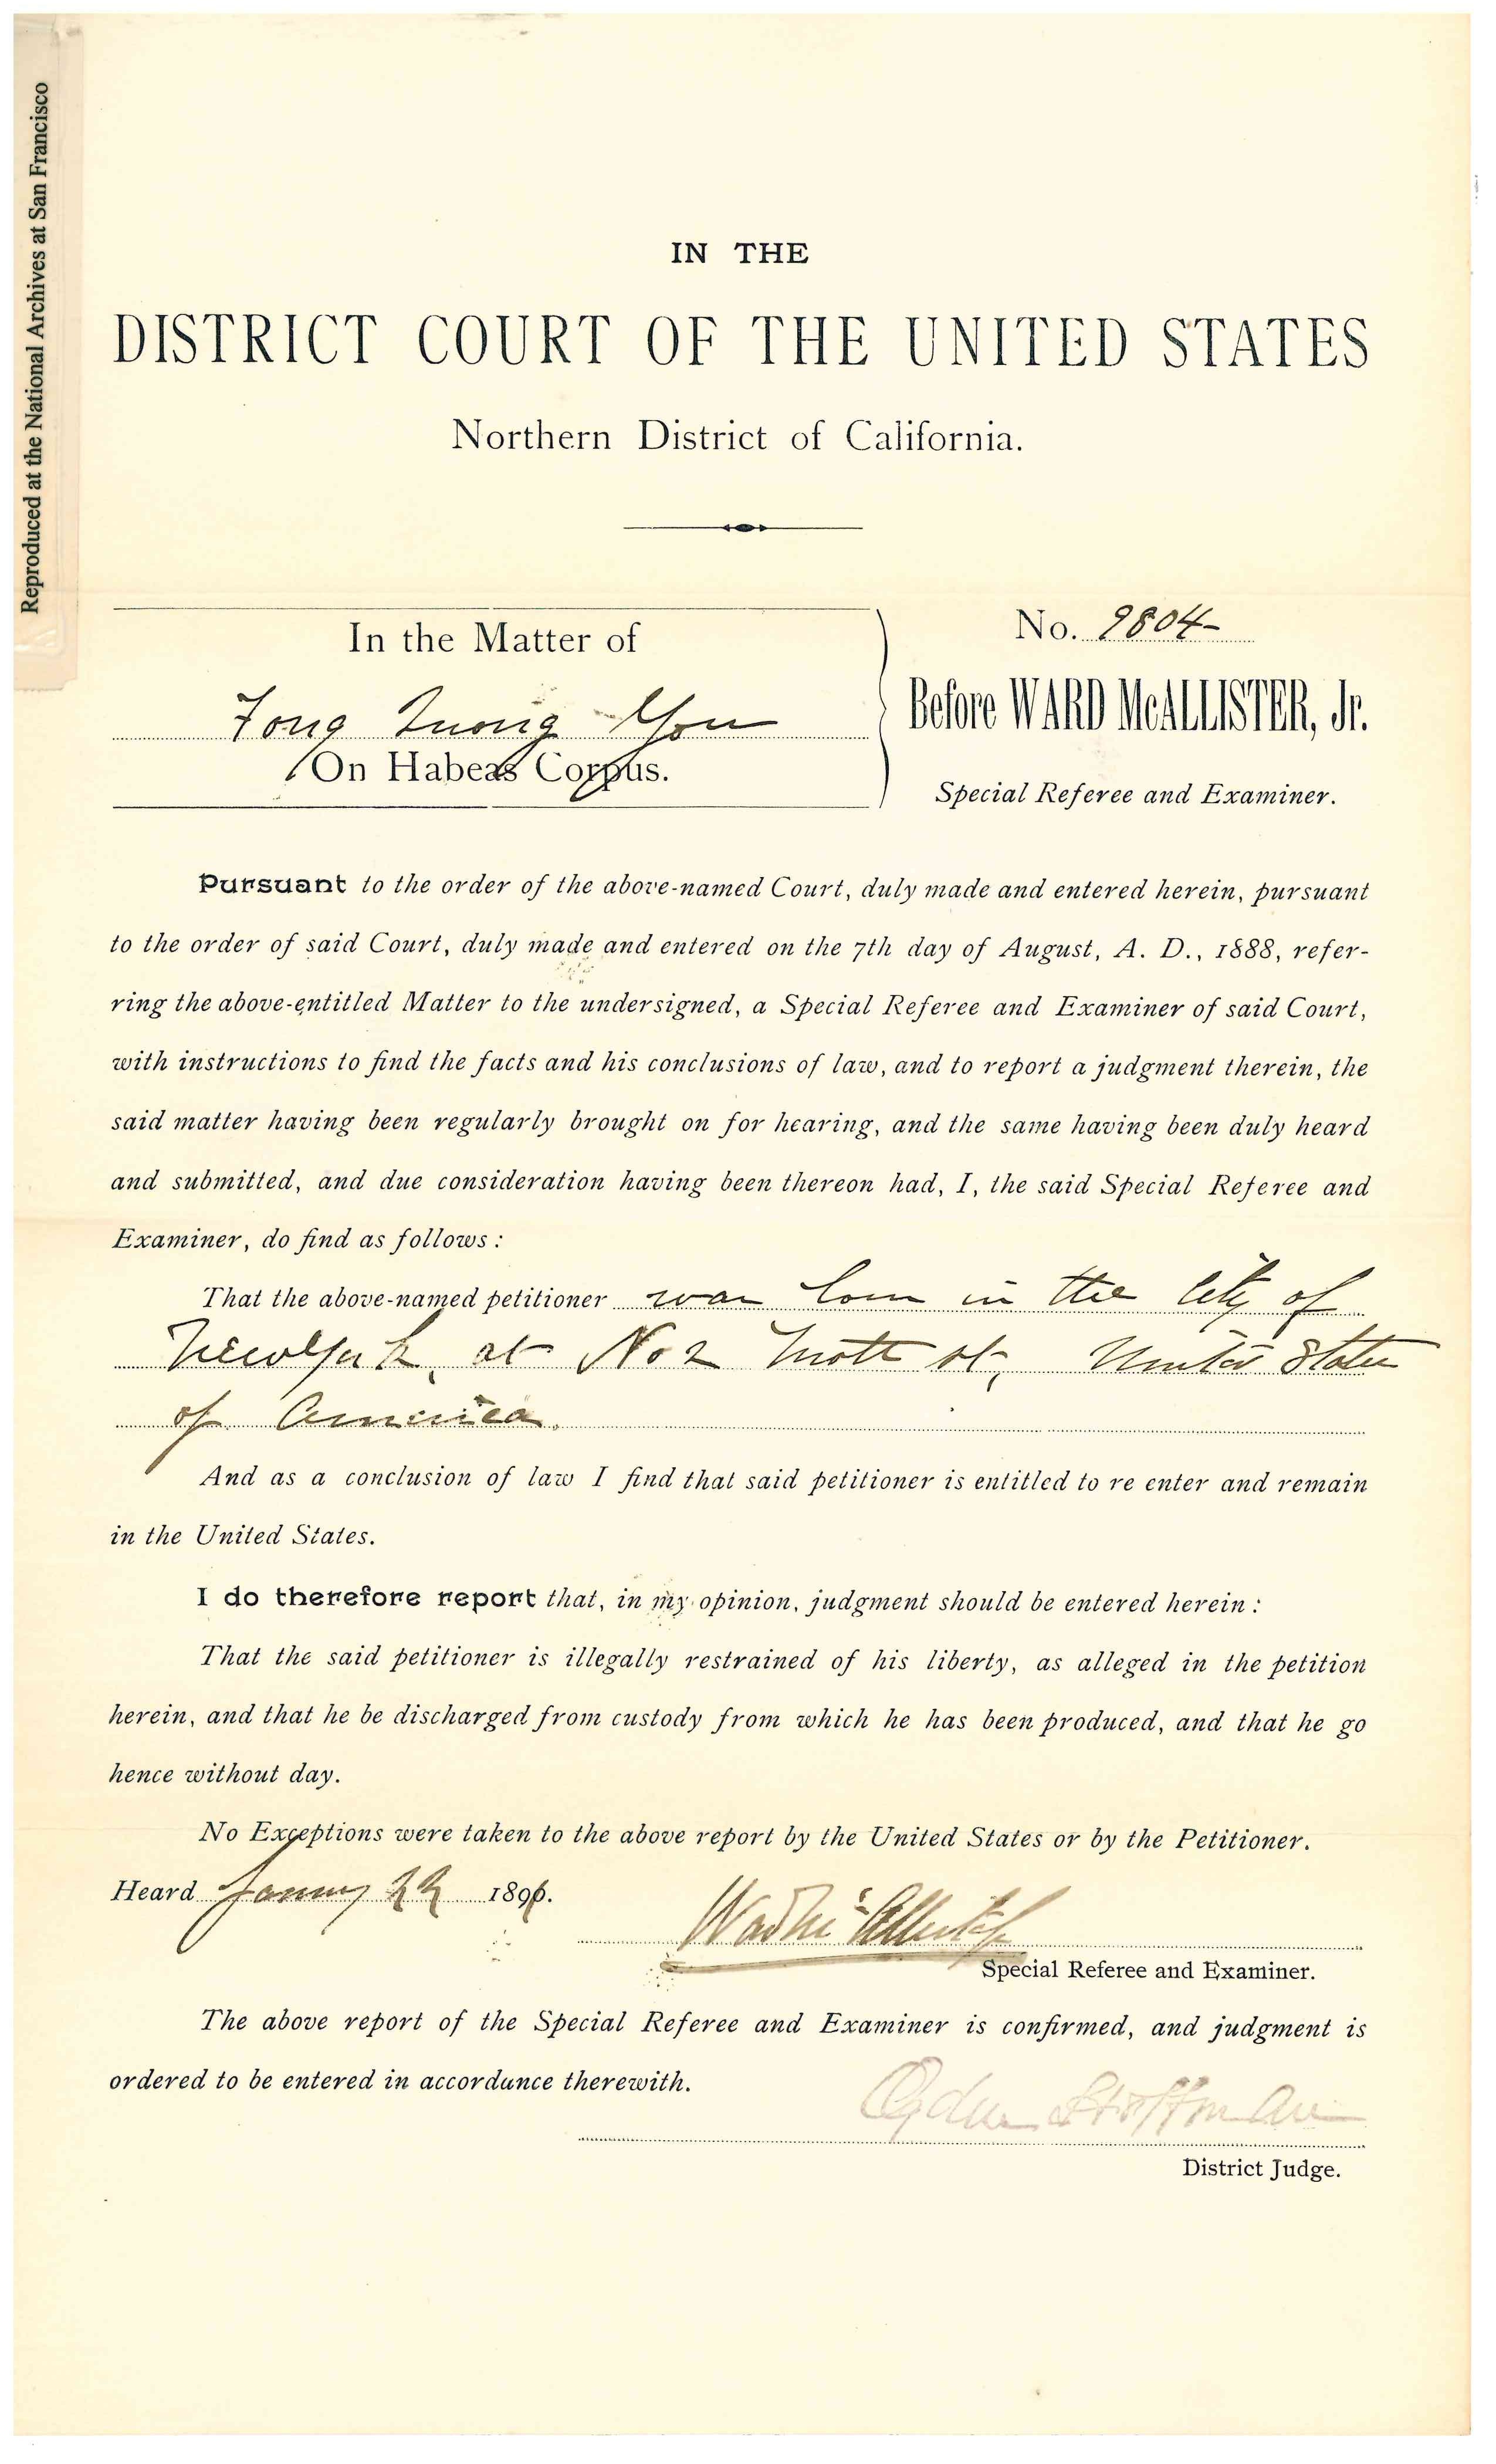 Reproduced at the National Archives at San Francisco
IN THE
DISTRICT COURT OF THE UNITED STATES
Northern District of California.
In the Matter of
No. 9804
Fong Quong You
Before WARD McALLISTER, Jr.
On Habeas Corpus.
Special Referee and Examiner.
Pursuant to the order of the above-named Court, duly made and entered herein, pursuant
to the order of said Court, duly made and entered on the 7th day of August, A. D., 1888, refer-
ring the above-entitled Matter to the undersigned, a Special Referee and Examiner of said Court,
with instructions to find the facts and his conclusions of law, and to report a judgment therein, the
said matter having been regularly brought on for hearing, and the same having been duly heard
and submitted, and due consideration having been thereon had, I, the said Special Referee and
Examiner, do find as follows :
That the above-named petitioner was born in the City of
New York, at No 2 Mott st, United States
of America.
And as a conclusion of law I find that said petitioner is entitled to re enter and remain
in the United States.
I do therefore report that, in my opinion, judgment should be entered herein :
That the said petitioner is illegally restrained of his liberty, as alleged in the petition
herein, and that he be discharged from custody from which he has been produced, and that he go
hence without day.
No Exceptions were taken to the above report by the United States or by the Petitioner.
Heard January 189
Ward McAllister Jr
Special Referee and Examiner.
The above report of the Special Referee and Examiner is confirmed, and judgment is
ordered to be entered in accordance therewith.
Ogden Hoffman
District Judge.